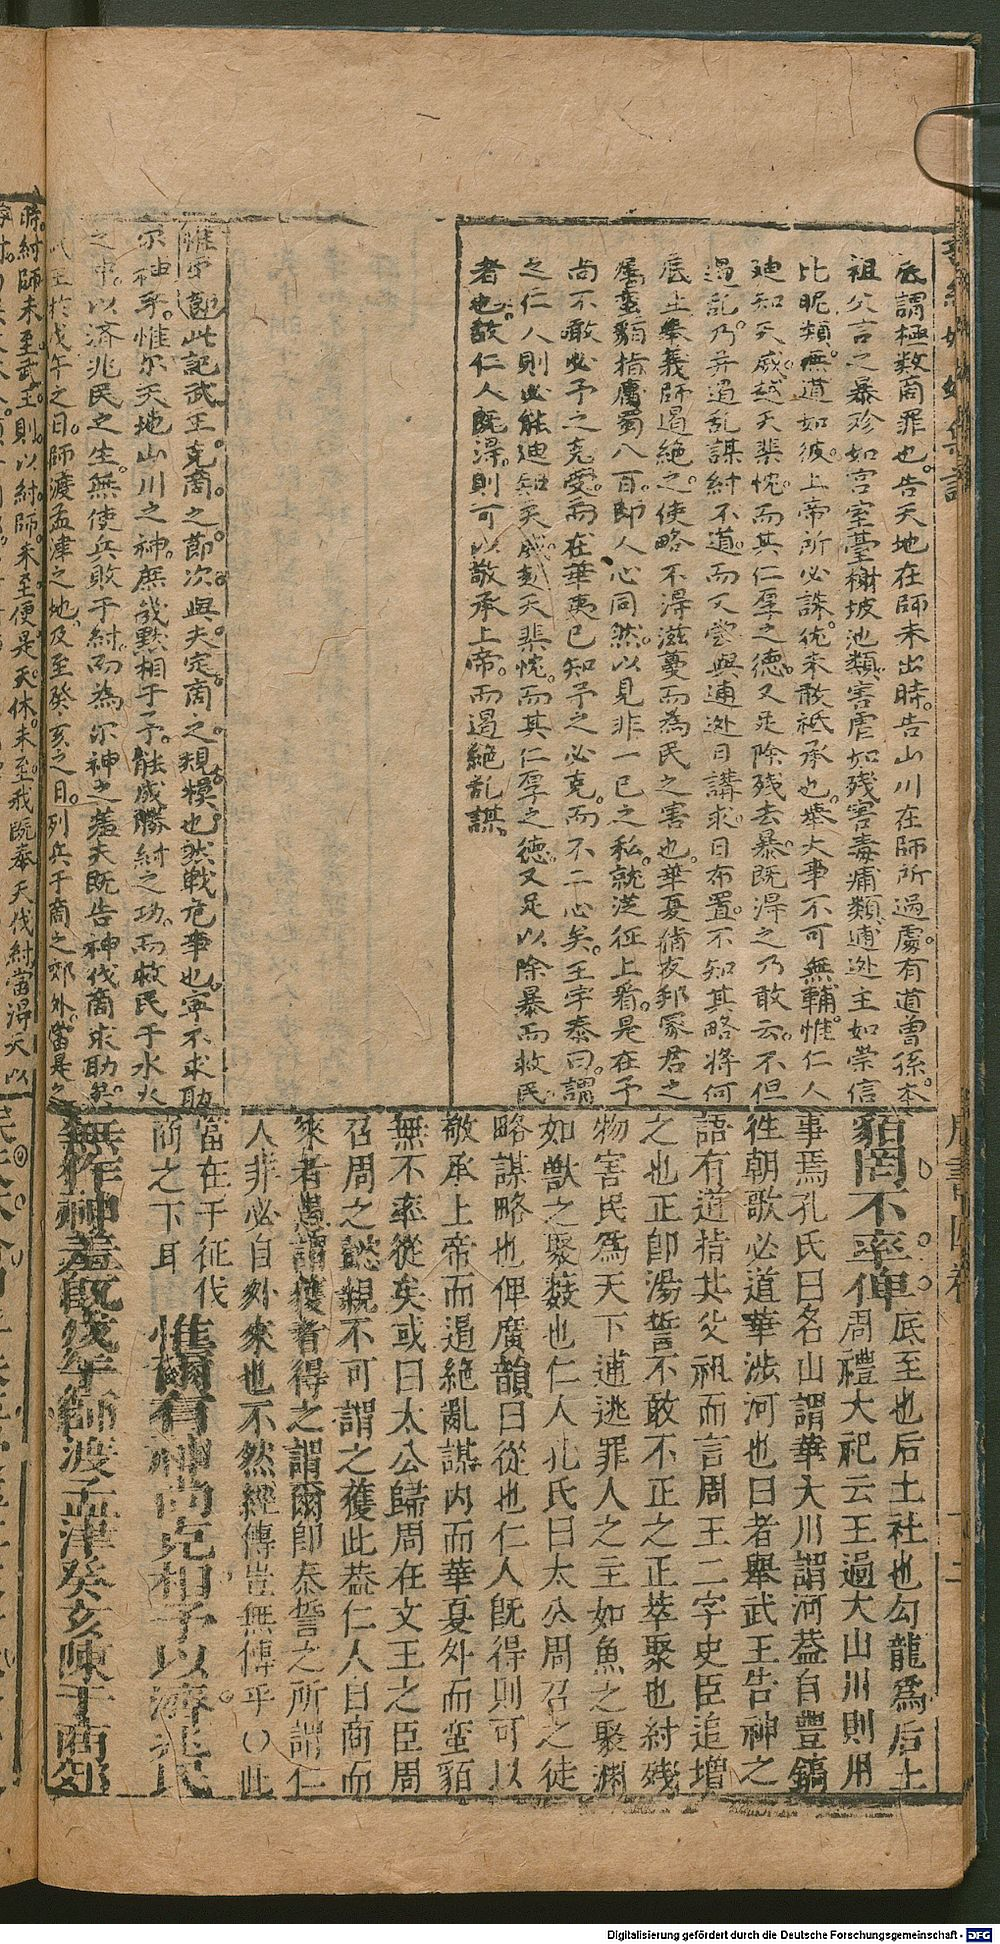 底謂極数商罪也告天地在師未出時告山川在師所過處有道曾孫本
祖父言之暴殄如宮室臺榭坡池類害虐如残害毒痡類逋逃主如崇信
比昵類無道如彼上帝所必誅侁未敢祗承也舉大事不可無輔惟仁人
廸知天威越天棐忱而其仁厚之德又足除残去暴既淂之乃敢云不但
遏乱乃并遏乱謀紂不道而又嘗與逋逃日講求日布置不知其略将何
底止奉義師遏絶之使略不淂滋蔓而為民之害也華夏徜夜邦冢君之
属蛮貊指庸蜀八百即人心同然以見非一已之私就従征上看是在予
尚不敢必予之克受而在華夷已知予之必克而不二心矣王宇泰曰謂
之仁人則必能廸知天威越天棐忱而其仁厚之德又足以除暴而救民
者也故仁人既淂則可以敬承上帝而遏絶乱謀
惟尔節此記武王克商之節次與夫定商之規模也然戦危事也寧不求助
尔神乎惟尔天地山川之神庶幾黙相于予能成勝紂之功而救民于水火
之中以済兆民之生無使兵敗于紂而為尔神之羞夫既告神伐商求助矣
武王於戊午之日師渡孟津之地及至癸亥之日列兵于商之郊外當是之
時紂師未至武王則以紂師未至便是天休未至我既奉天伐紂當淂天以
周書四卷
貊罔不率俾底至也后土社也勾龍為后土
周禮大祀云王過大山川則用
事焉孔氏曰名山謂華大川謂河葢自豐鎬
徃朝歌必道華渉河也曰者舉武王告神之
語有道指其父祖而言周王二字史臣追增
之也正卽湯誓不敢不正之正萃聚也紂殘
物害民為天下逋逃罪人之主如魚之聚淵
如獸之聚薮也仁人孔氏曰太公周召之徒
略謀略也俾廣韻曰從也仁人既得則可以
敬承上帝而遏絶亂謀内而華夏外而蛮貊
無不率從矣或曰太公歸周在文王之臣周
召周之懿親不可謂之獲此葢仁人自商而
來者愚謂獲者得之謂爾卽泰誓之所謂仁
人非必自外來也不然經傳豈無傳乎〇此
當在于征伐
商之下耳
惟爾有神尚克相予以濟兆民
無作神羞既戊午師渡孟津癸亥陳于商郊
Digitalisierung gefördert durch die Deutsche Forschungsgemeinschaft - DFG